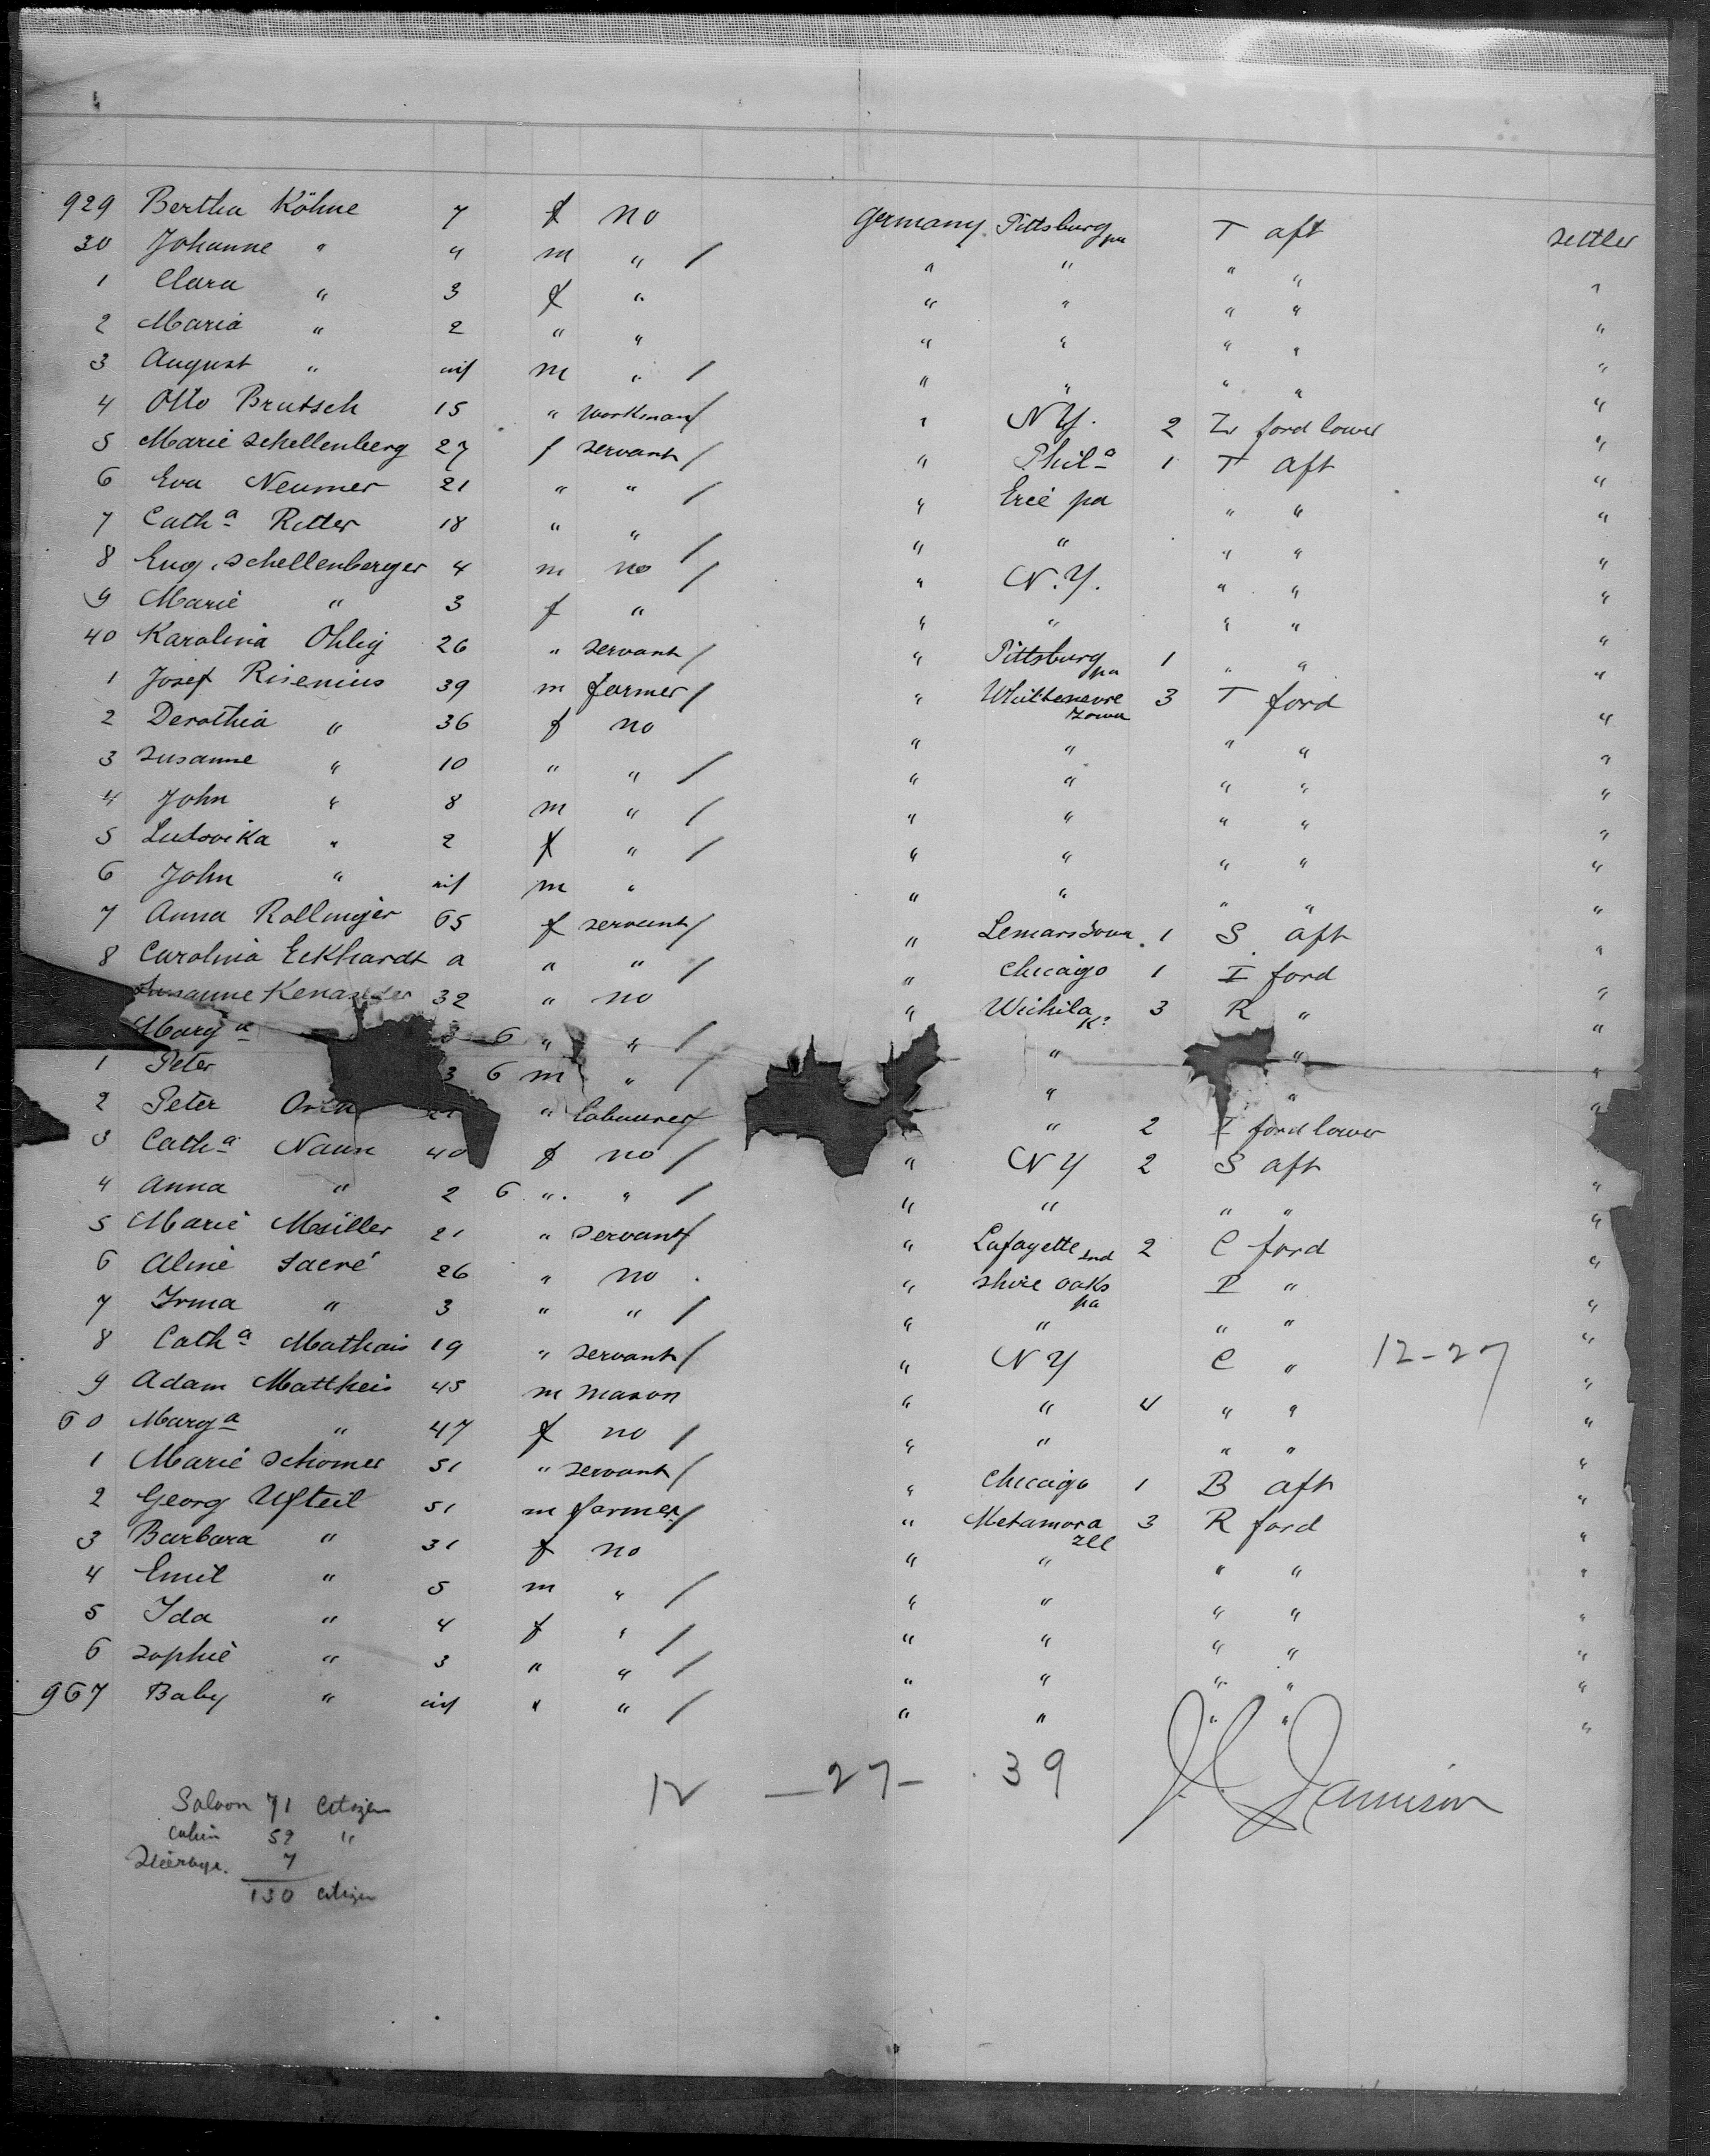 929 Bertha Köhne 7 f no Germany Pittsburg pa T aft settler
30 Johanne " 4 m " / " " " " "
1 Clara " 3 f " " " " " "
2 Maria " 2 " " " " " " "
3 August " inf m " / " " " " "
4 Otto Brutsch 15 " workman / " N Y. 2 Z ford lower "
5 Marie Schellenberg 27 f servant / " Phila 1 T aft "
6 Eva Neumer 21 " " / " Erie pa " " "
7 Catha Ritter 18 " " / " " " " "
8 Eug. Schellenberger 4 m no / " N.Y. " " "
9 Marie " 3 f " " " " " "
40 Karolina Ohlig 26 " servant / " Pittsburg pa 1 " " "
1 Josef Risenius 39 m farmer / " Iowa 3 T ford "
2 Derothia " 36 f no " " " " "
3 Susanne " 10 " " / " " " " "
4 John " 8 m " / " " " " "
5 Ludovika " 2 f " / " " " " "
6 John " inf m " " " " " "
7 Anna Rollinger 65 f servant / " Lemars Iowa 1 S aft "
8 Carolina Eckhardt a " " / " Chicago 1 I ford "
Susanne 32 " no " Wichita Ks 3 R " "
Marga 3 6 " " / " " "
1 Peter 3 6 m " / " " "
2 Peter " labourer / " 2 I ford lower "
3 Catha Naun 40 f no / " N Y 2 S aft "
4 Anna " 2 6 " " / " " " " "
5 Marie Müller 21 " servant / " Lafayette Ind 2 C ford "
6 Aline Sacré 26 " no " Shire Oaks pa I " "
7 Irma " 3 " " / " " " " "
8 Catha Mathais 19 " servant / " N Y C " 12-27 "
9 Adam Mattheis 45 m mason " " 4 " " "
60 Marga " 47 f no / " " " " "
1 Marie Schomer 51 " servant / " Chicago 1 B aft "
2 Georg Ufteil 51 m farmer / " Metamora Ill 3 R ford "
3 Barbara " 31 f no " " " " "
4 Emil " 5 m " / " " " " "
5 Ida " 4 f " / " " " " "
6 Sophie " 3 " " / " " " " "
967 Baby " inf " " / " " " " "
12 — 27 — 39 Jamison
Saloon 71 Citizen
Cabin 52 "
Steerage. 7
130 Citizen